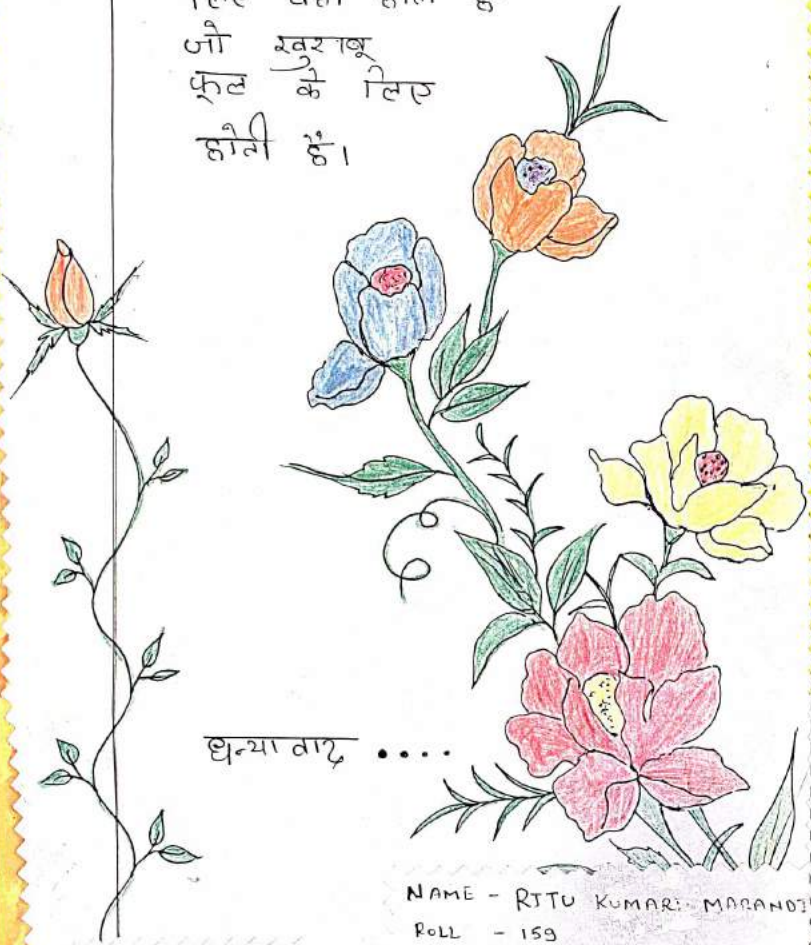 जो खुशबू
फूल के लिए
होती हैं।
धन्यावाद ....
NAME - RITU KUMARI MARANDI
ROLL - 159